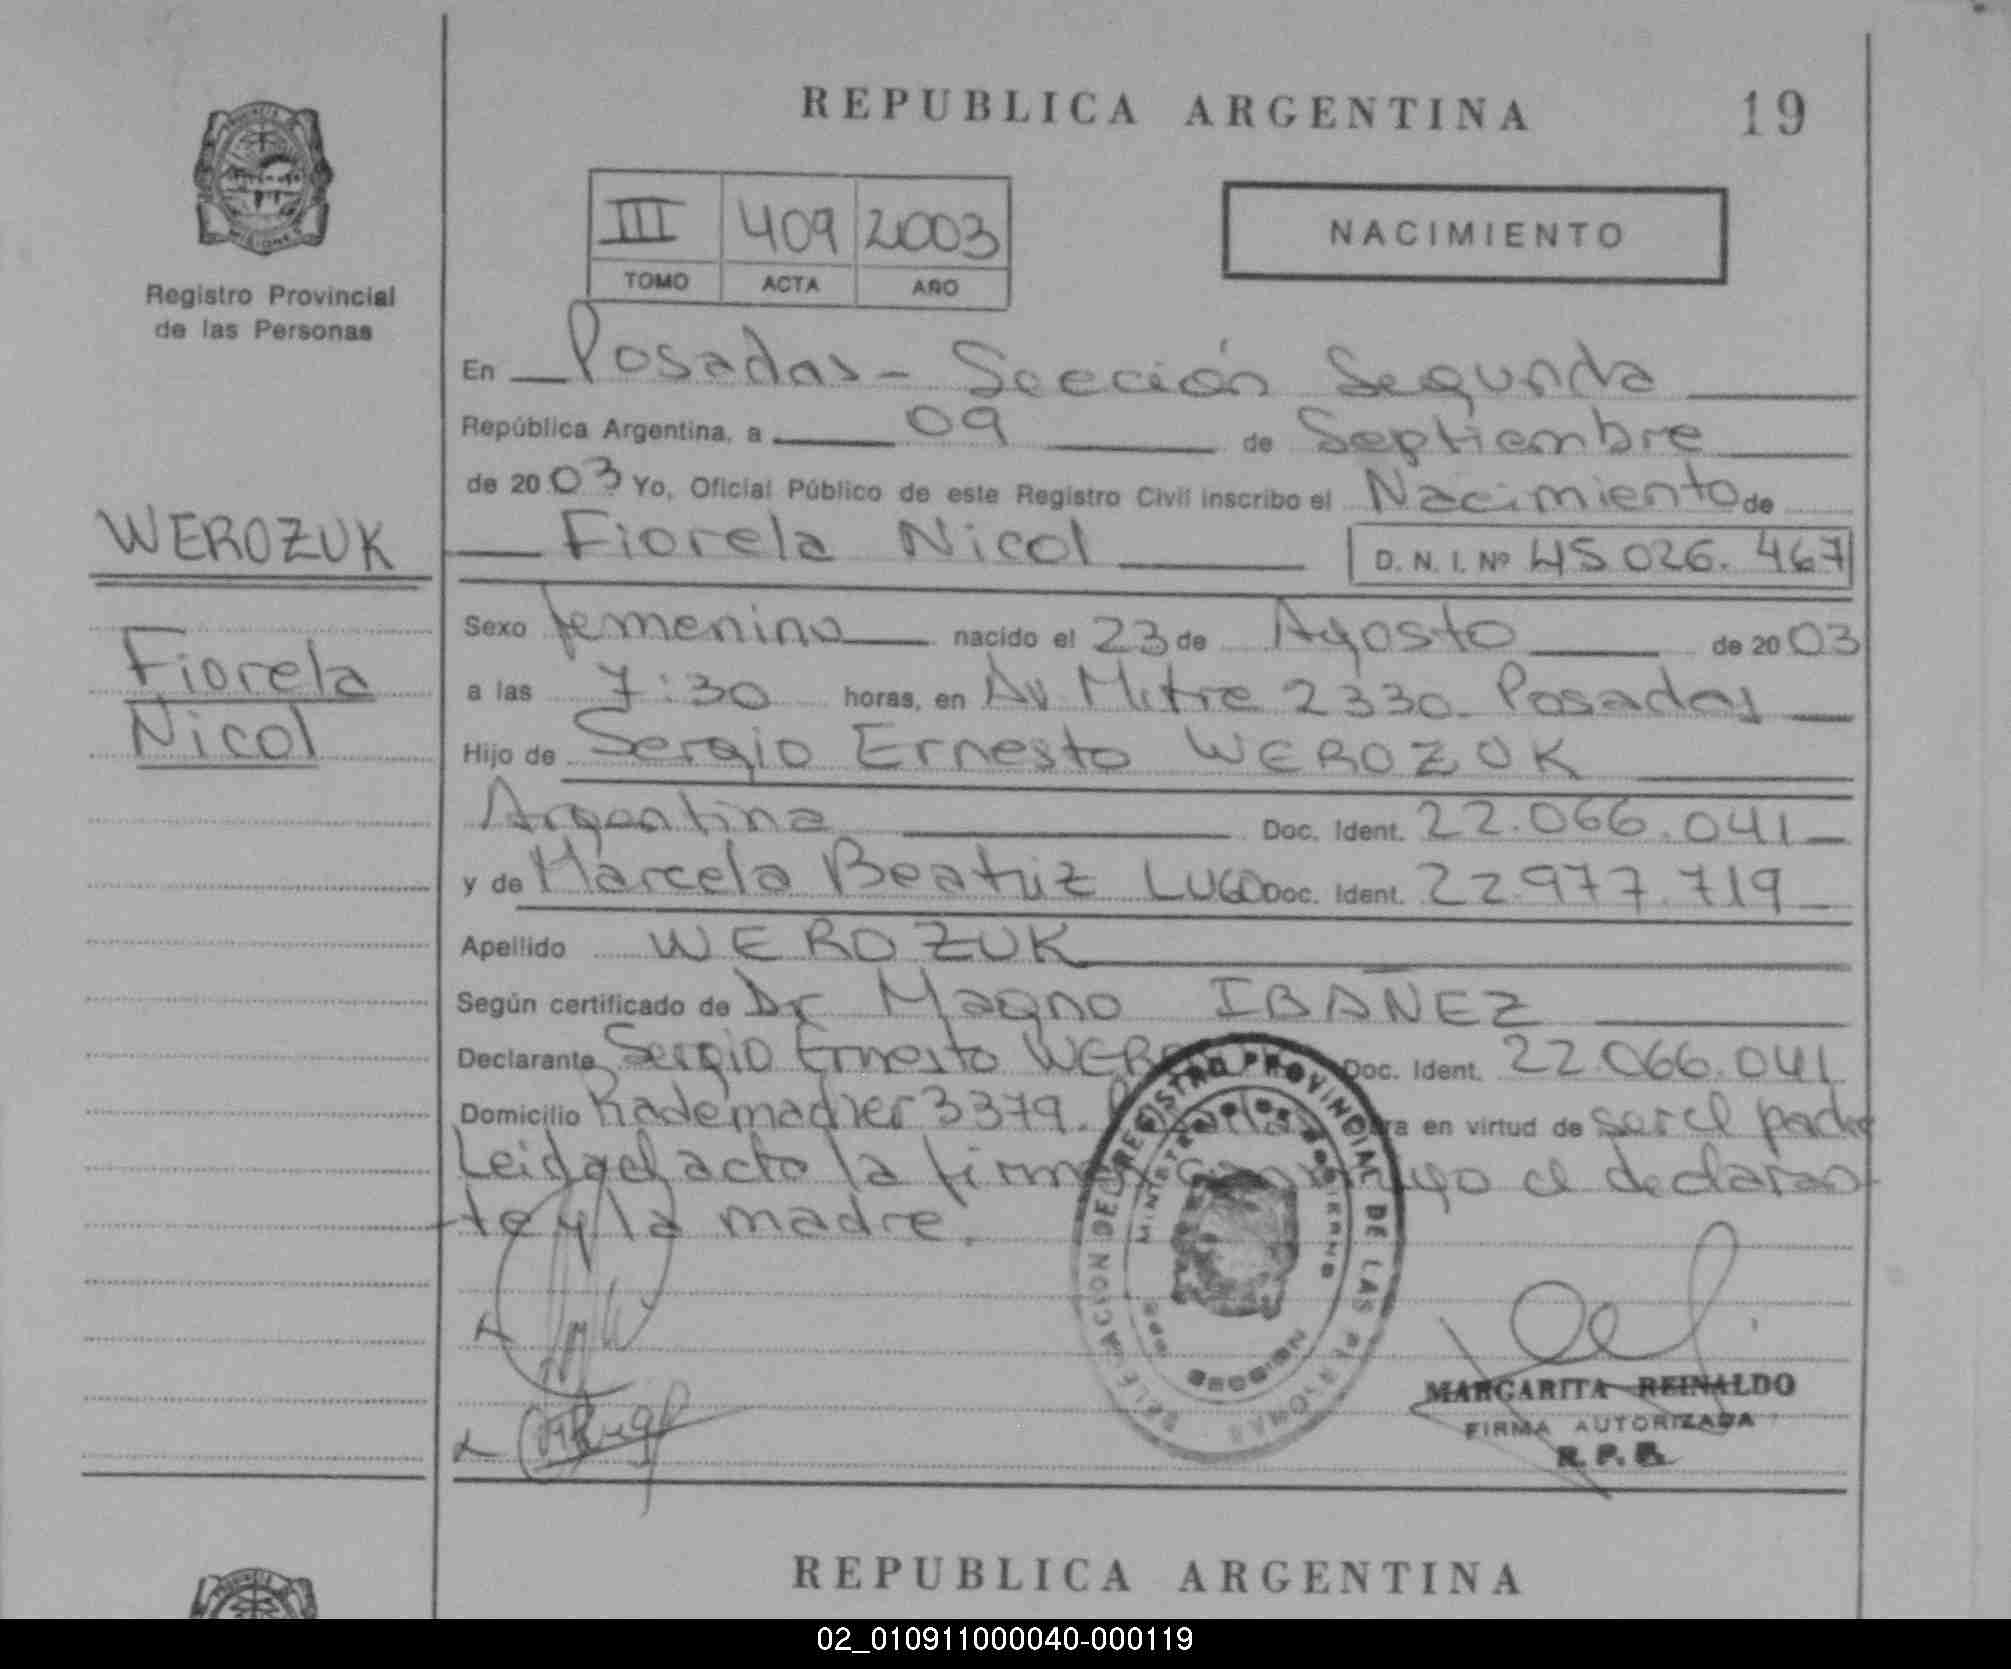 REPUBLICA ARGENTINA
19
PROVINCIA
MISIONES
Registro Provincial
de las Personas
III 409 2003
TOMO ACTA AÑO
NACIMIENTO
En Posadas - Sección Segunda
República Argentina, a 09 de Septiembre
de 2003 Yo, Oficial Público de este Registro Civil inscribo el Nacimiento de
WEROZUK
Fiorela Nicol D. N. I. Nº 45.026.467
Sexo femenino nacido el 23 de Agosto de 2003
Fiorela
Nicol
a las 7:30 horas, en Av. Mitre 2330. Posadas
Hijo de Sergio Ernesto WEROZUK
Argentina Doc. Ident. 22.066.041
y de Marcela Beatriz LUGO Doc. Ident. 22.977.719
Apellido WEROZUK
Según certificado de Dr Magno IBAÑEZ
Declarante Sergio Ernesto Doc. Ident. 22.066.041
Domicilio Rademacher 3379. en virtud de ser el padre
Leida el acto la firman conmigo el declaran-
te y la madre.
DELEGACION DEL REGISTRO PROVINCIAL DE LAS PERSONAS
MINISTERIO DE GOBIERNO
MISIONES
MARGARITA REINALDO
FIRMA AUTORIZADA
R. P. P.
REPUBLICA ARGENTINA
02_010911000040-000119